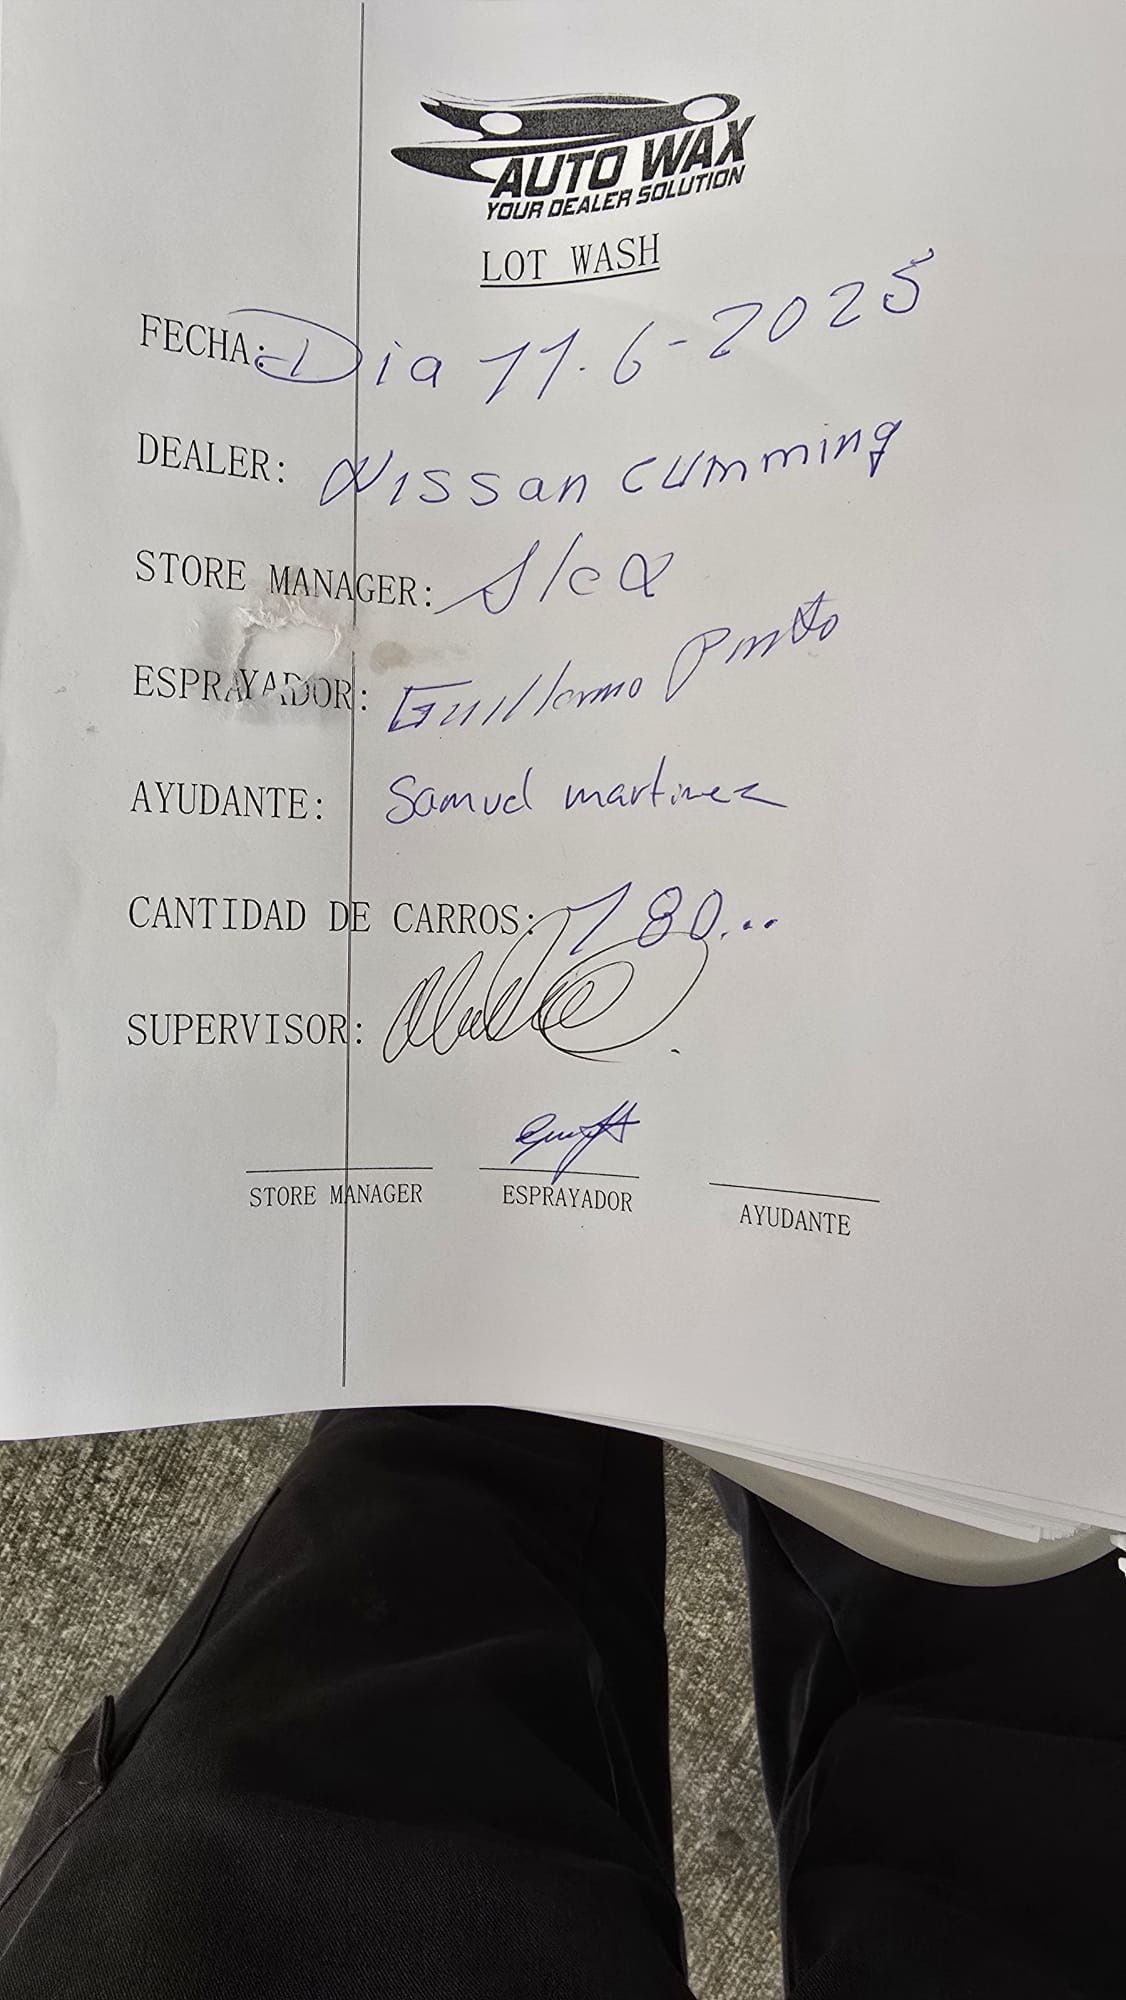 AUTO WAX
YOUR DEALER SOLUTION
LOT WASH
FECHA: Dia 11.6-2025
DEALER: Nissan cumming
STORE MANAGER: Alex
ESPRAYADOR: Guillermo Pinto
AYUDANTE: Samuel martinez
CANTIDAD DE CARROS: 180...
SUPERVISOR:
STORE MANAGER ESPRAYADOR AYUDANTE